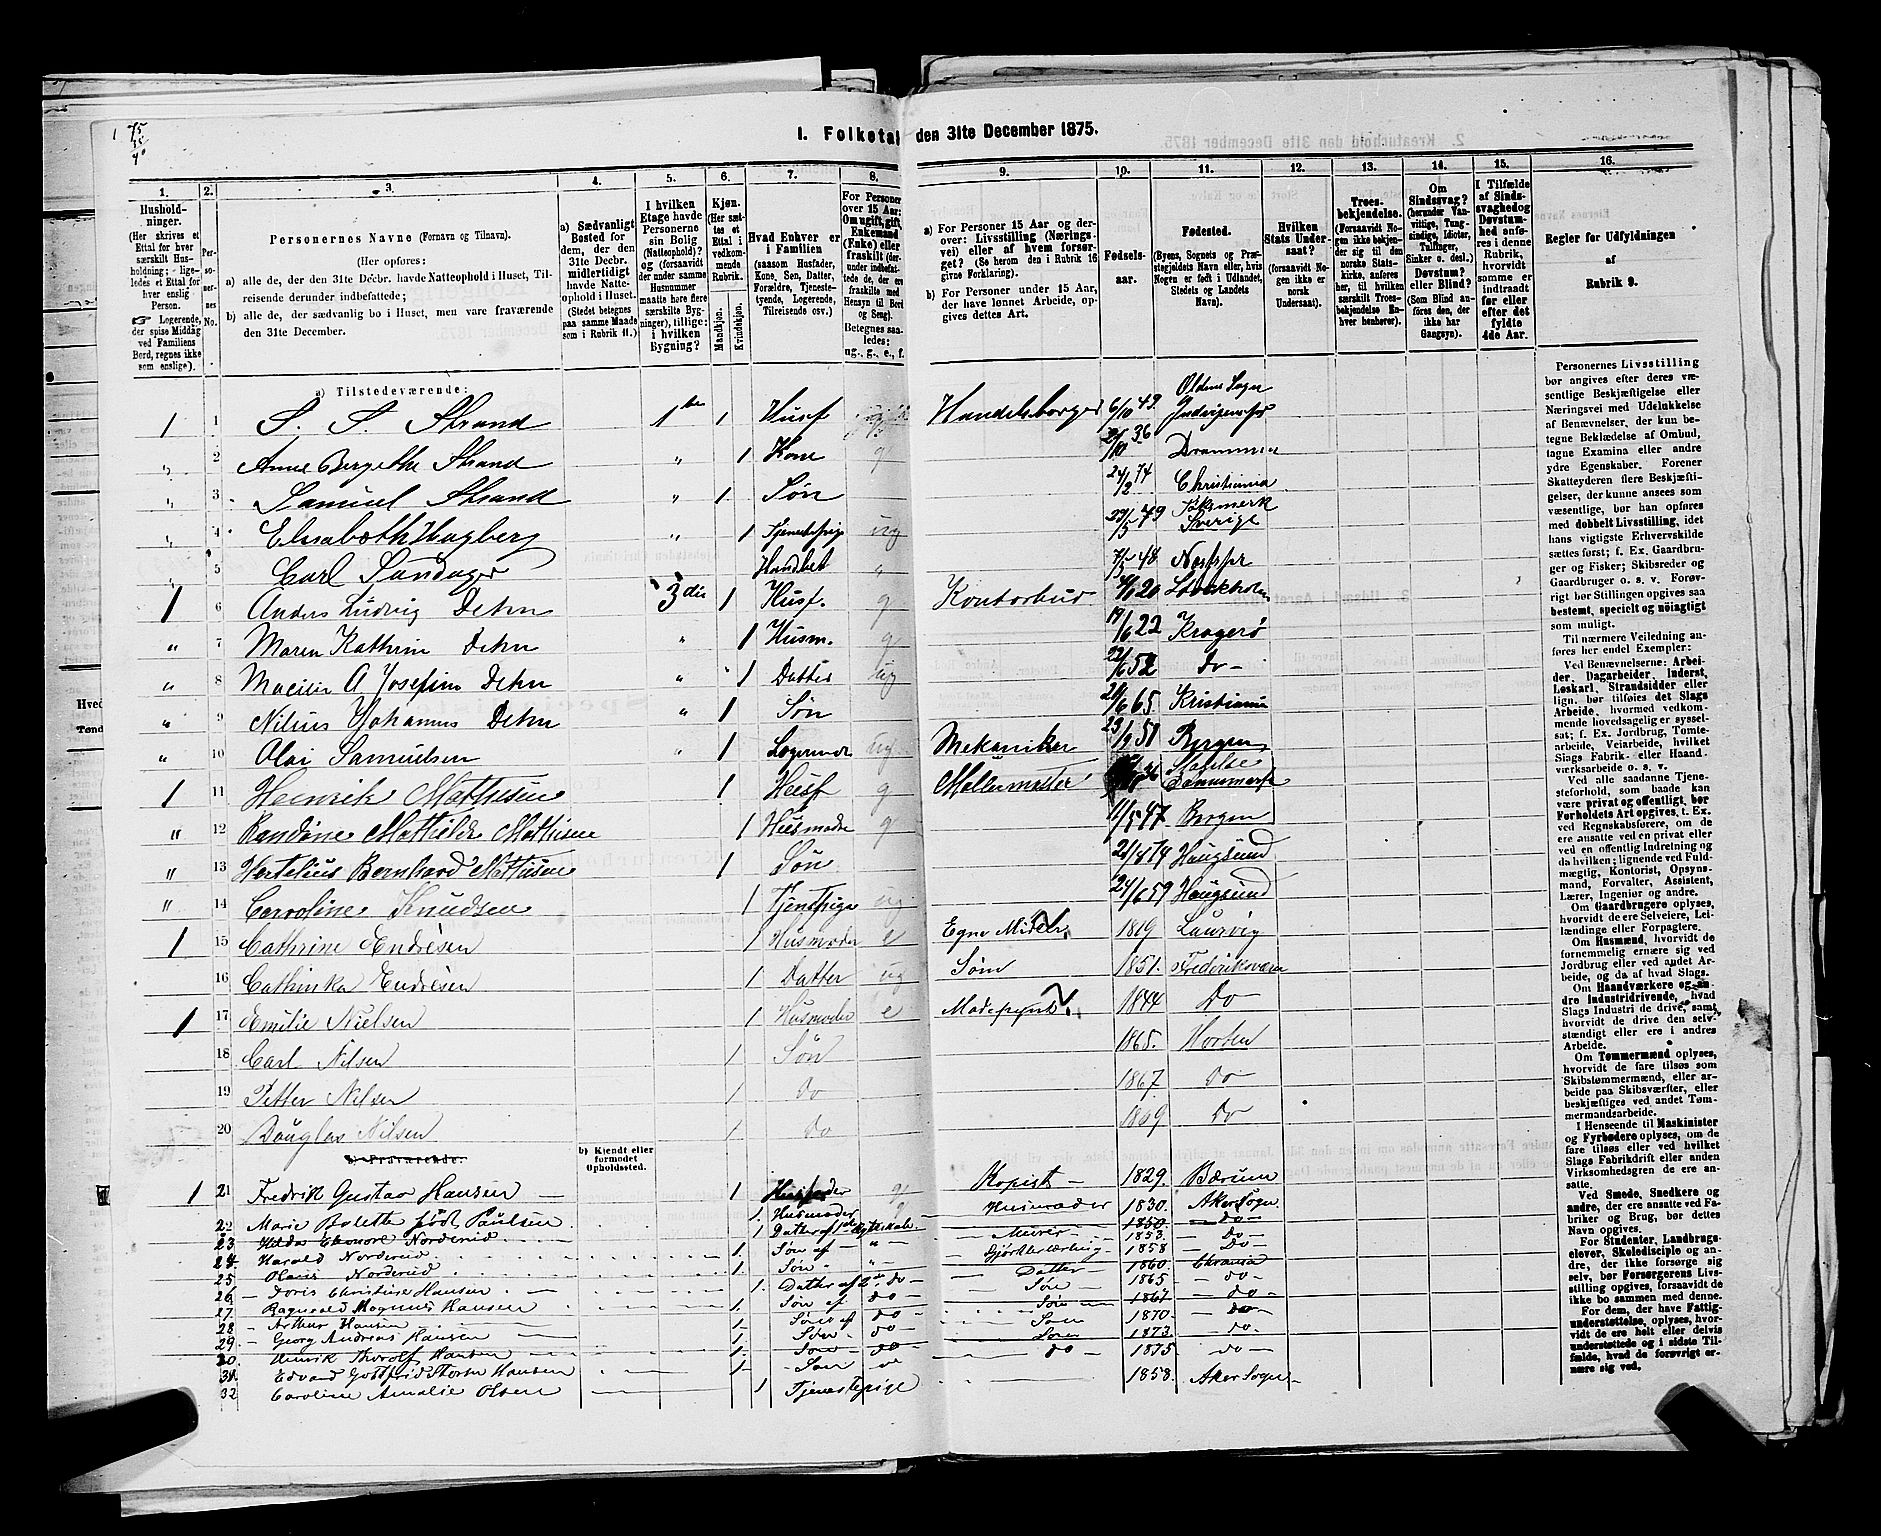 I. Folketa den 31te December 1875.
1. 2. 3. 4. 5. 6. 7. 8. 9. 10. 11. 12. 13. 14. 15. 16.
Hushold-
ninger.
(Her skrives et
Ettal for hver
særskilt Hus-
holdning; lige-
ledes et Ettal
for hver enslig
Person.
☞ Logerende,
der spise Middag
ved Familiens
Bord, regnes ikke
som enslige).
Per-
so-
ner-
nes
No.
Personernes Navne (Fornavn og Tilnavn).
(Her opføres:
a) alle de, der den 31te Decbr. havde Natteophold i Huset, Til-
reisende derunder indbefattede;
b) alle de, der sædvanlig bo i Huset, men vare fraværende
den 31te December.
a) Sædvanligt
Bosted for
dem, der den
31te Decbr.
midlertidigt
havde Natte-
ophold i Huset.
(Stedet betegnes
paa samme Maade
som i Rubrik 11.)
I hvilken
Etage havde
Personerne
sin Bolig
(Natteophold)?
og (forsaavidt
der under samme
Husnummer
maatte høre flere
særskilte Byg-
ninger), tillige:
i hvilken
Bygning?
Kjøn.
(Her sæt-
tes et
Ettal i
vedkom-
mende
Rubrik.)
Mandkjøn.
Kvindekjøn.
Hvad Enhver er
i Familien
(saasom Husfader,
Kone, Søn, Datter,
Forældre, Tjeneste-
tyende, Logerende,
Tilreisende osv.)
For Personer
over 15 Aar:
Om ugift, gift,
Enkemand
(Enke) eller
fraskilt (der-
under indbefat-
tede de, der ere
fraskilte med
Hensyn til Bord
og Seng).
Betegnes saa-
ledes:
ug., g., e., f.
a) For Personer 15 Aar og der-
over: Livsstilling (Nærings-
vei) eller af hvem forsør-
get? (Se herom den i Rubrik 16
givne Forklaring).
b) For Personer under 15 Aar,
der have lønnet Arbeide, op-
gives dettes Art.
Fødsels-
aar.
Fødested.
(Byens, Sognets og Præ-
stegjeldets Navn eller, hvis
Nogen er født i Udlandet,
Stedets og Landets
Navn).
Hvilken
Stats Under-
saat?
(forsaavidt No-
gen ikke er
norsk
Undersaat).
Troes-
bekjendelse.
(Forsaavidt No-
gen ikke bekjen-
der sig til den
norske Stats-
kirke, anføres
her, til hvilken
særskilt Troes-
bekjendelse En-
hver henhører).
Om
Sindssvag?
(herunder Van-
vittige, Tung-
sindige, Idioter,
Tullinger,
Sinker o. desl.)
Døvstum?
eller Blind?
(Som Blind an-
føres den, der
ikke har
Gangsyn).
I Tilfælde
af Sinds-
svaghed og
Døvstum-
hed anfø-
res i denne
Rubrik,
hvorvidt
samme er
indtraadt
før eller
efter det
fyldte
4de Aar.
Regler for Udfyldningen
af
Rubrik 9.
a) Tilstedeværende:
1 1 S. S. Strand 1ste 1 Husf Handelsborger 6/10 49 Oldens Sogn
2 Anne Bergethe Strand " 1 Kone g 36 Drammen
3 Samuel Strand " 1 Søn 24/2 74 Christiania
4 Elisabeth Hagberg " 1 ug 49 Sverige
5 Carl Sundager " 7/5 48
1 6 Anders Ludvig Dehn 3die 1 Husf. g 20 Stockholm
" 7 Maren Kathrin Dehn " 1 Husm. g 19/6 22 Kragerø
" 8 A Josefine Dehn " 1 Datter ug 22/6 52 do -
" 9 Nilius Johannes Dehn " 1 Søn 65 Kristiania
" 10 Olai Samuelsen " 1 Logerende ug Mekaniker 51 Bergen
1 11 Henrik Mathisen 1 Husf g Møllermester 36 Dannemark
" 12 Randine Mathilde Mathisen 1 Husmoder g 11/5 47 Bergen
" 13 Hertelius Bernhard Mathisen 1 Søn 74 Haugsund
" 14 Carroline Knudsen 1 Tjenstpige ug 24/6 59 Haugsund
1 15 Cathrine Endresen 1 Husmoder e Egne Midler. 1819 Laurvig
16 Cathinka Endresen 1 Datter ug Søm 1851. Frederiksværn
1 17 Emilie Nielsen 1 Husmoder e Modepynt. 1844 Do
18 Carl Nilsen 1 Søn 1865. Horten
19 Petter Nilsen 1 do 1867. do
20 Douglas Nilsen 1 do 1869 Do
b) Fraværende.
b) Kjendt eller
formodet
Opholdssted.
1 21 Fredrik Gustav Hansen 1 Husfader g Kopist 1829. Bærum
22 Marie Bolette født Paulsen 1 Husmoder g Husmoder 1830. Aker Sogn
23 Hilda Elenore Norderud 1 Datter af 1850. Do
24 Harald Norderud 1. Søn af " Murer 1853. Do
25 Olavis Norderud 1. Søn " 1858 Do
26 Doris Christine Hansen 1. Datter af 2det do Datter 1860. Chrania
27 Ragnvald Magnus Hansen 1. Søn af do Søn 1865 do
28 Arthur Hansen 1 Søn af do Søn 1867 do
29 Georg Andreas Hansen 1 Søn do Søn 1870 do
30 Henrik Thorolf Hansen 1 Søn do Søn 1873 do
31 Edvard Gotfrid Storm Hansen 1 Søn do do 1875 do
32 Caroline Amalie Olsen 1 Tjenestepige 1858. Aker Sogn
Personernes Livsstilling
bør angives efter deres væ-
sentlige Beskjæftigelse eller
Næringsvei med Udelukkelse
af Benævnelser, der kun be-
tegne Beklædelse af Ombud,
tagne Examina eller andre
ydre Egenskaber. Forener
Skatteyderen flere Beskjæfti-
gelser, der kunne ansees som
væsentlige, bør han opføres
med dobbelt Livsstilling, idet
hans vigtigste Erhvervskilde
sættes først; f. Ex. Gaardbru-
ger og Fisker; Skibsreder og
Gaardbruger o. s. v. Forøv-
rigt bør Stillingen opgives saa
bestemt, specielt og nøiagtigt
som muligt.
Til nærmere Veiledning an-
føres her endel Exempler:
Ved Benævnelserne: Arbei-
der, Dagarbeider, Inderst,
Løskarl, Strandsidder eller
lign. bør tilføies det Slags
Arbeide, hvormed vedkom-
mende hovedsagelig er syssel-
sat; f. Ex. Jordbrug, Tømte-
arbeide, Veiarbeide, hvilket
Slags Fabrik- eller Haand-
værksarbeide o. s. v.
Ved alle saadanne Tjene-
steforhold, som baade kan
være privat og offentligt, bør
Forholdets Art opgives, t. Ex.
ved Regnskabsførere, om de
ere ansatte ved en privat eller
ved en offentlig Indretning og
da hvilken; lignende ved Fuld-
mægtig, Kontorist, Opsyns-
mand, Forvalter, Assistent,
Lærer, Ingeniør og andre.
Om Gaardbrugere oplyses,
hvorvidt de ere Selveiere, Lei-
lændinge eller Forpagtere.
Om Husmænd, hvorvidt de
fornemmelig ernære sig ved
Jordbrug eller ved andet Ar-
beide, og da af hvad Slags.
Om Haandværkere og an-
dre Industridrivende, hvad
Slags Industri de drive, samt,
hvorvidt de drive den selv-
stændigt eller ere i andres
Arbeide.
Om Tømmermænd oplyses,
hvorvidt de fare tilsøs som
Skibstømmermænd, eller ar-
beide paa Skibsværfter, eller
beskjæftiges ved andet Tøm-
mermandsarbeide.
I Henseende til Maskinister
og Fyrbødere oplyses, om de
fare tilsøs eller ved hvilket
Slags Fabrikdrift eller anden
Virksomhedsgren de ere an-
satte.
Ved Smede, Snedkere og
andre, der ere ansatte ved Fa-
briker og Brug, bør dettes
Navn opgives.
For Studenter, Landbrugs-
elever, Skoledisciple og an-
dre, der ikke forsørge sig
selv, bør Forsørgerens Livs-
stilling opgives, forsaavidt de
ikke bo sammen med denne.
For dem, der have Fattig-
understøttelse, oplyses, hvor-
vidt de ere helt eller delvis
understøttede og i sidste Til-
fælde, hvad de forøvrigt er-
nære sig ved.